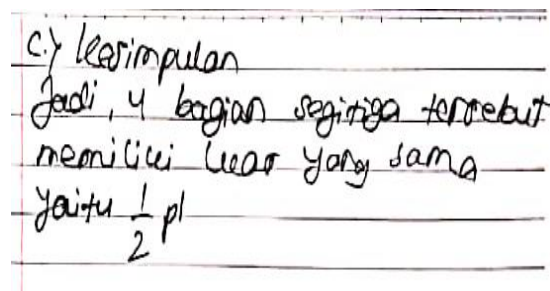 c.) kesimpulan
Jadi, 4 bagian segitiga tersebut
memiliki luas yang sama
yaitu 1/2 pl